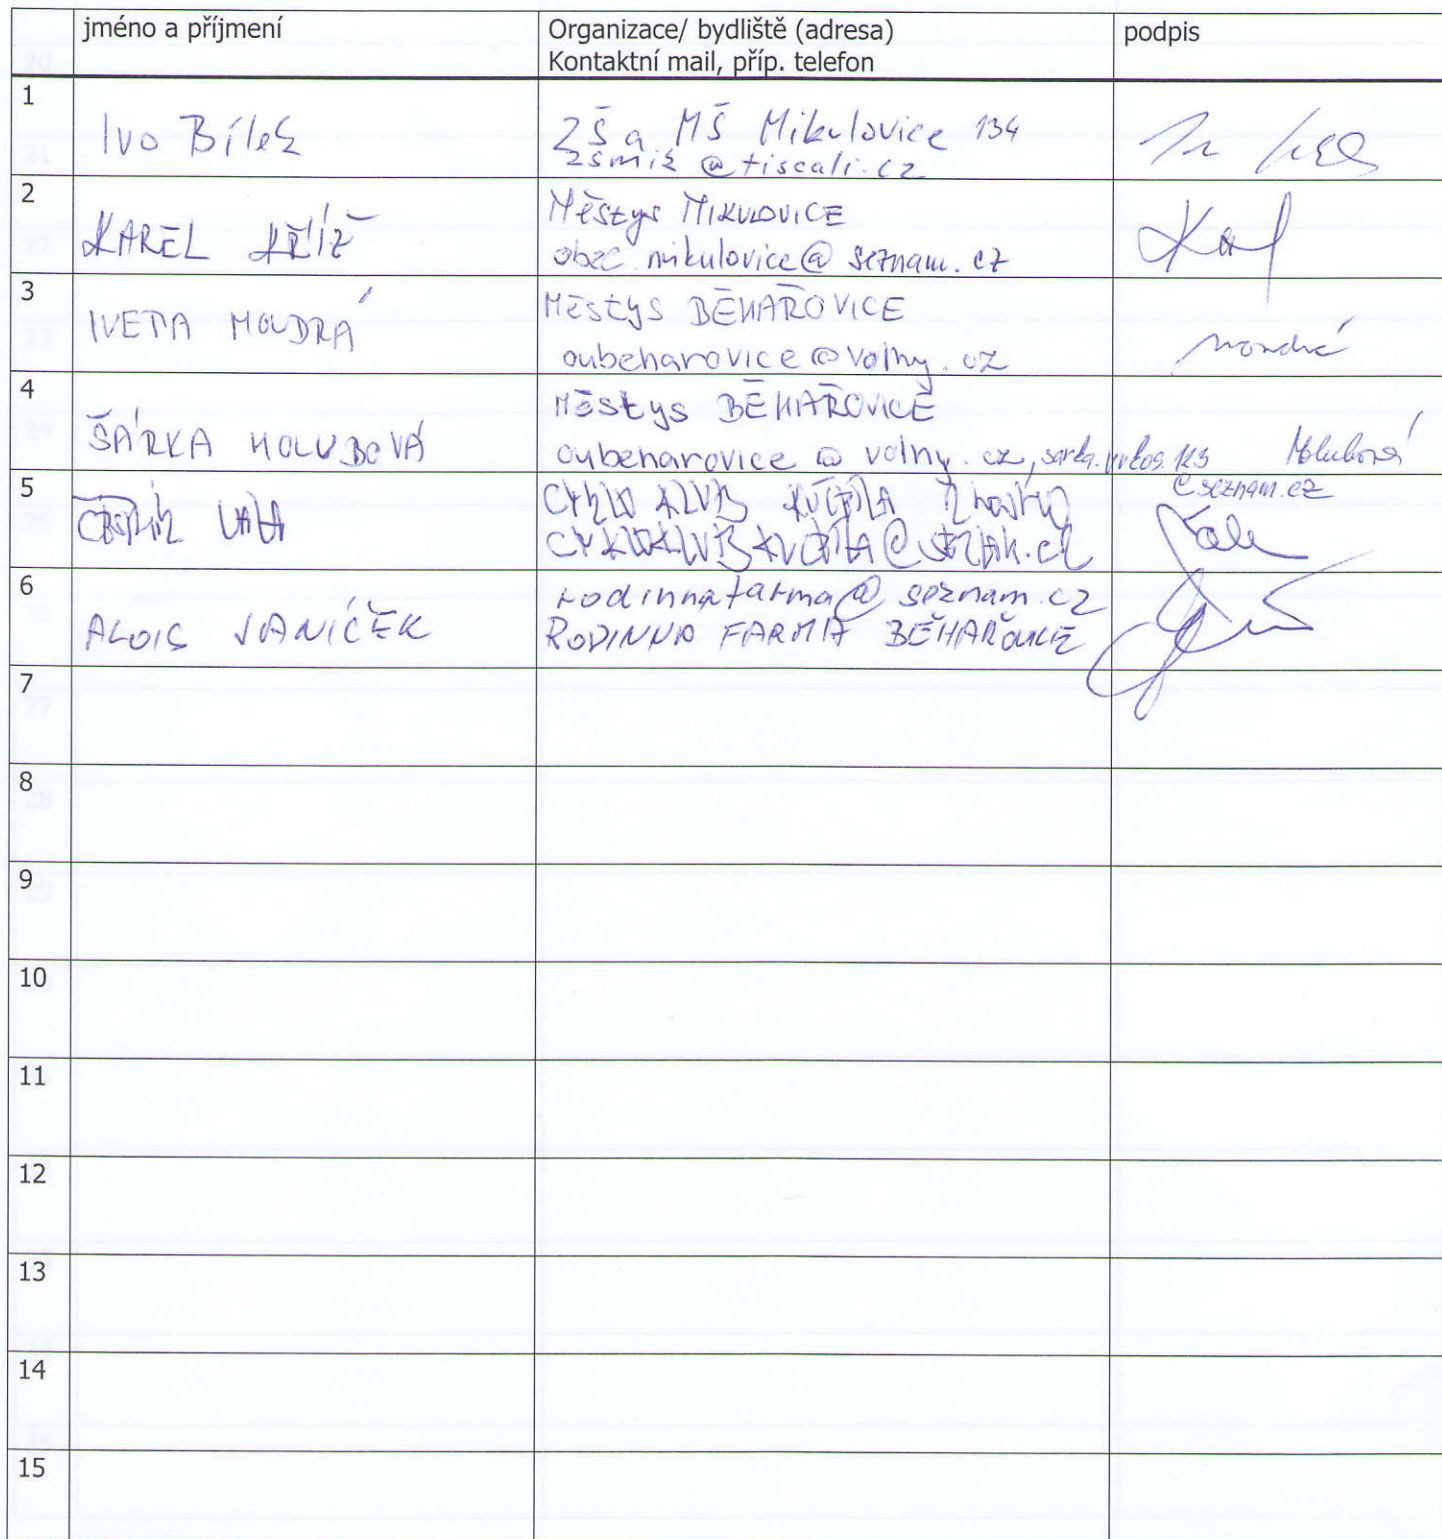 jméno a příjmení
Organizace/ bydliště (adresa)
Kontaktní mail, příp. telefon
podpis
1
Ivo Bílek
ZŠ a MŠ Mikulovice 134
zsmik@tiscali.cz
2
KAREL KŘÍŽ
Městys MIKULOVICE
obec.mikulovice@seznam.cz
3
IVETA MOUDRÁ
Městys BĚHAŘOVICE
oubeharovice@volny.cz
Moudrá
4
ŠÁRKA HOLUBOVÁ
Městys BĚHAŘOVICE
oubeharovice@volny.cz,
@seznam.cz
Holubová
5
VALA
CYKLO KLUB KUČERA ZNOJMO
6
ALOIS JANÍČEK
rodinnafarma@seznam.cz
RODINNA FARMA BĚHAŘOVICE
7
8
9
10
11
12
13
14
15